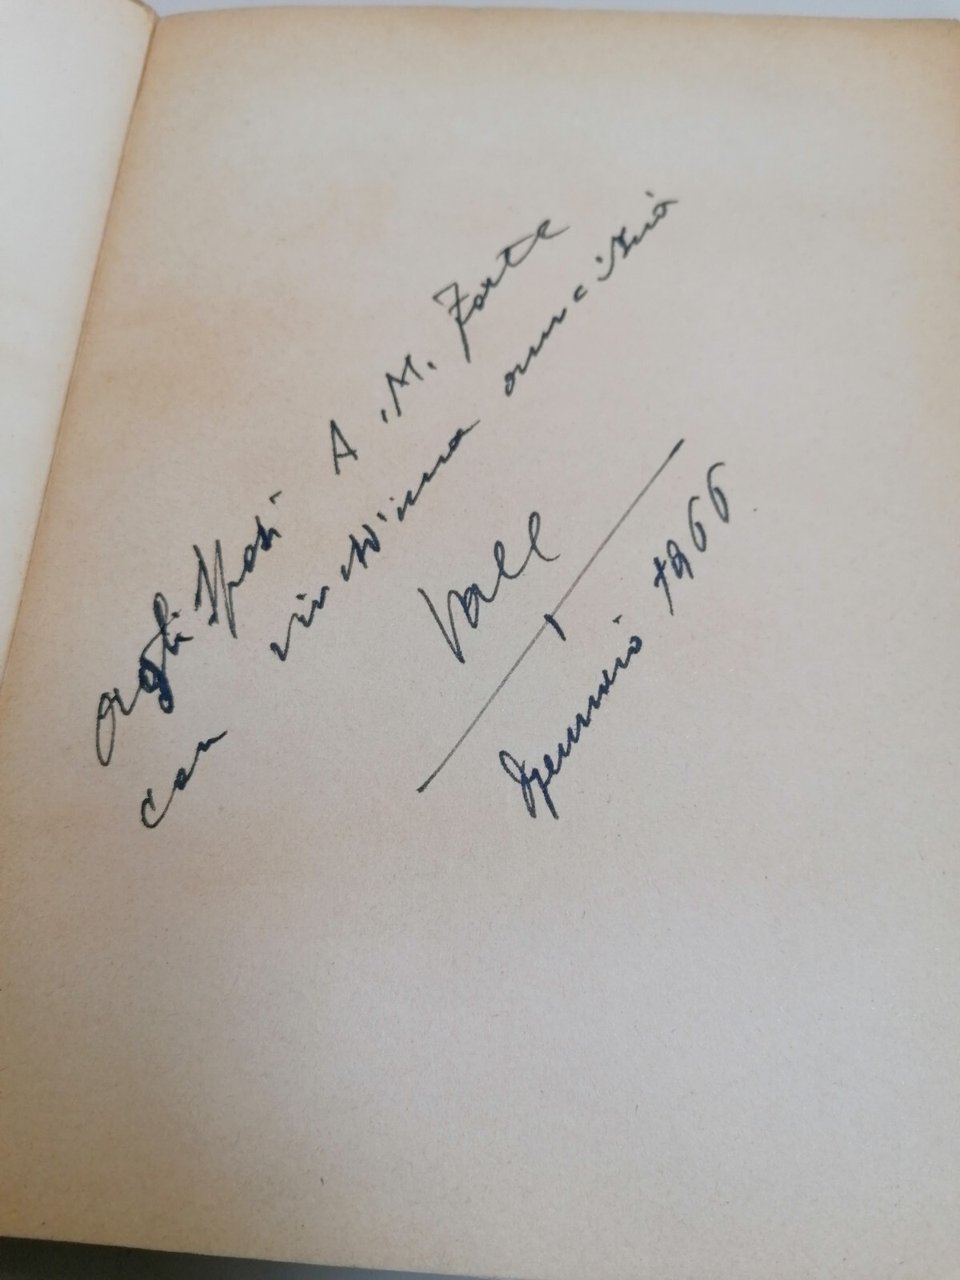 agli sposi A. M. Forte
con vivissima amicizia
Vall
Gennaio 1966.